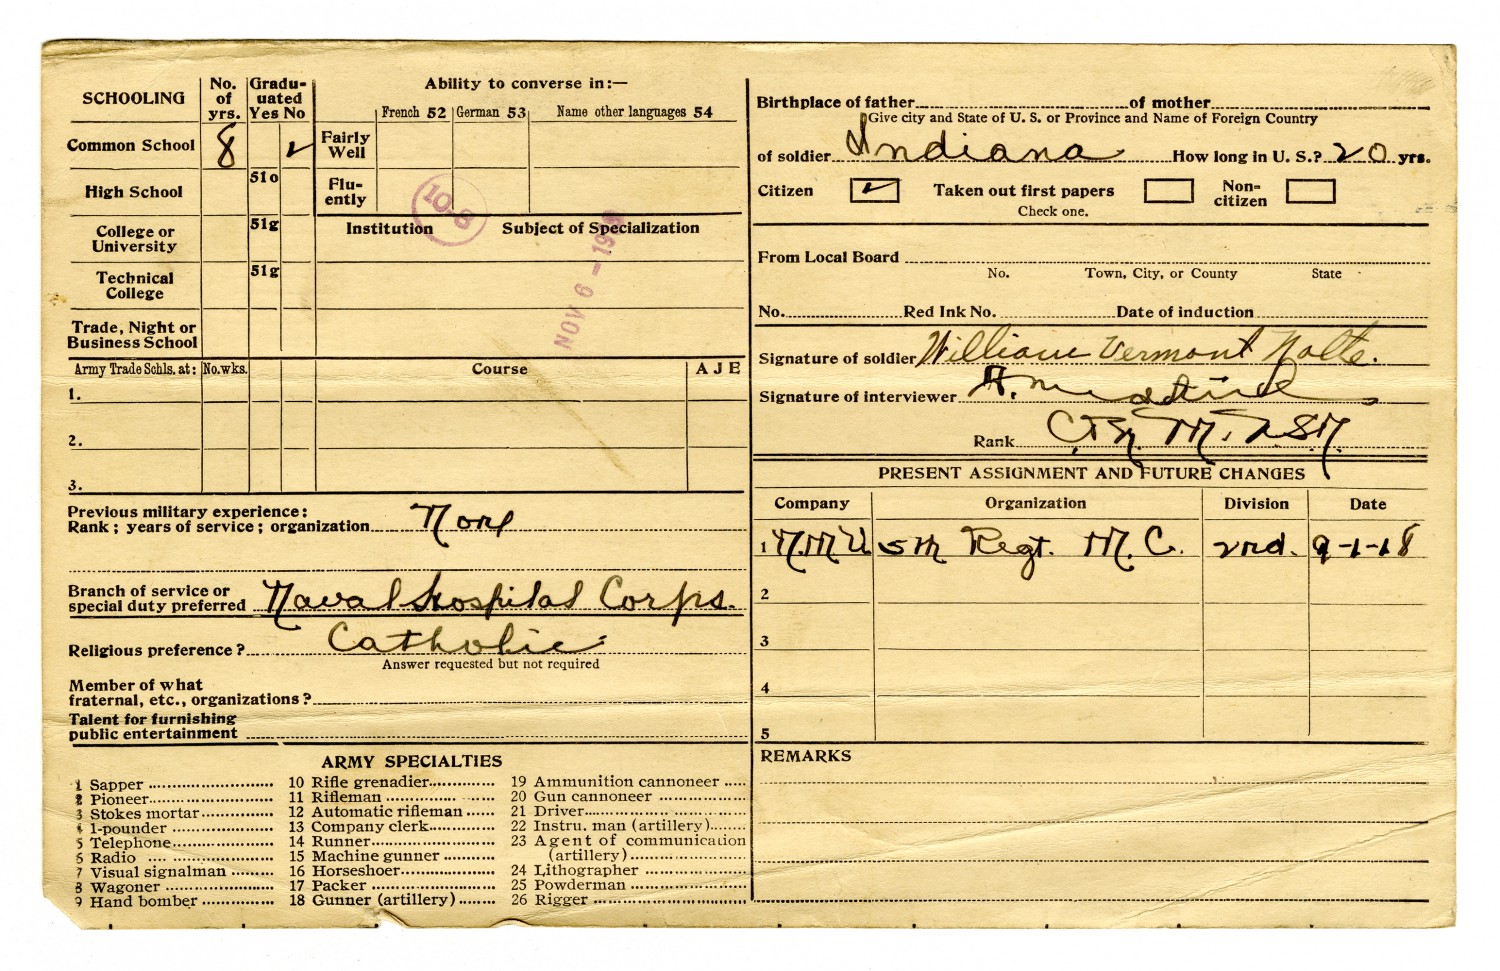 SCHOOLING
No. of yrs.
Graduated
Yes No
Common School 8 ✓
High School 51o
College or University 51g
Technical College 51g
Trade, Night or Business School
Ability to converse in:—
French 52 German 53 Name other languages 54
Fairly Well
Fluently
10-8
Institution Subject of Specialization
NOV 6 - 19
Army Trade Schls. at: No. wks. Course A J E
1.
2.
3.
Previous military experience:
Rank; years of service; organization None
Branch of service or
special duty preferred Naval Hospital Corps.
Religious preference? Catholic
Answer requested but not required
Member of what
fraternal, etc., organizations?
Talent for furnishing
public entertainment
ARMY SPECIALTIES
1 Sapper
2 Pioneer
3 Stokes mortar
4 1-pounder
5 Telephone
6 Radio
7 Visual signalman
8 Wagoner
9 Hand bomber
10 Rifle grenadier
11 Rifleman
12 Automatic rifleman
13 Company clerk
14 Runner
15 Machine gunner
16 Horseshoer
17 Packer
18 Gunner (artillery)
19 Ammunition cannoneer
20 Gun cannoneer
21 Driver
22 Instru. man (artillery)
23 Agent of communication
(artillery)
24 Lithographer
25 Powderman
26 Rigger
Birthplace of father of mother
Give city and State of U. S. or Province and Name of Foreign Country
of soldier Indiana How long in U. S.? 20 yrs.
Citizen ✓ Taken out first papers Non-citizen
Check one.
From Local Board
No. Town, City, or County State
No. Red Ink No. Date of induction
Signature of soldier William Vermont Nolte.
Signature of interviewer
Rank
PRESENT ASSIGNMENT AND FUTURE CHANGES
Company Organization Division Date
1 N.M.U 5th Regt. M. C. 2nd. 9-1-18
2
3
4
5
REMARKS